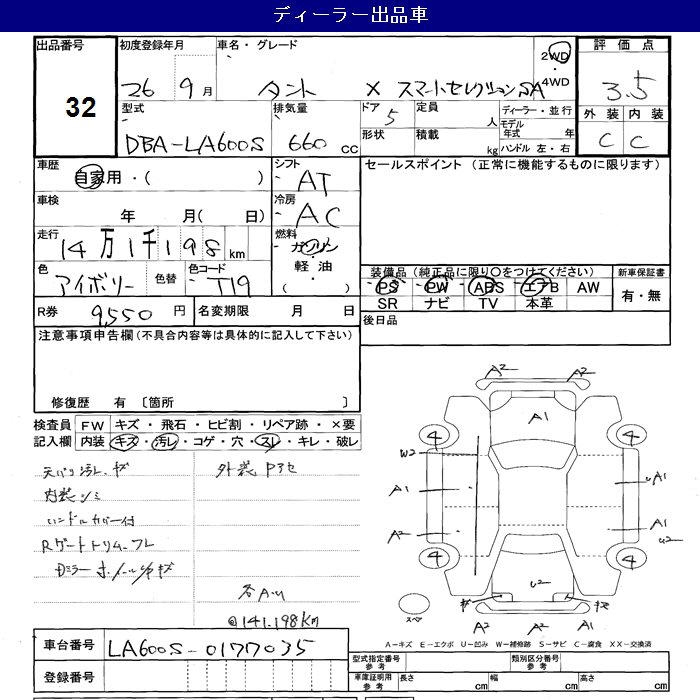 ディーラー出品車
出品番号 32
初度登録年月 26 9月
車名・グレード タント X スマートセレクションSA
2WD・4WD
評価点 3.5
外装 C 内装 C
型式 DBA-LA600S
排気量 660 CC
ドア 5
定員 人
ディーラー・並行
モデル年式 年
形状
積載 kg
ハンドル 左・右
車歴 自家用・( )
シフト AT
セールスポイント (正常に機能するものに限ります)
車検 年 月( 日)
冷房 AC
走行 14万1千198km
燃料 ガソリン・軽油・( )
色 アイボリー 色替 色コード T19
装備品(純正品に限り○をつけてください) 新車保証書
PS PW ABS エアB AW 有・無
SR ナビ TV 本革
R券 9,550円 名変期限 月 日
後日品
注意事項申告欄(不具合内容等は具体的に記入して下さい)
修復歴 有 〔箇所 〕
検査員記入欄 FW キズ・飛石・ヒビ割・リペア跡・×要
内装 キズ・汚レ・コゲ・穴・スレ・キレ・破レ
天バリ汚レ、キズ 外装
内装シミ
ハンドルカバー付
Rゲートトリム
各AU
@141.198km
A2 A2
A1
4 4
W2
A1 A1
A2 A1
U2
4 4
U2
キズ キズ
スペア
A2 A1 A2
A-キズ E-エクボ U-凹み W-補修跡 S-サビ C-腐食 XX-交換済
車台番号 LA600S-0177035
登録番号
型式指定番号 参考 類別区分番号 参考
車庫証明用 参考 長さ cm 幅 cm 高さ cm